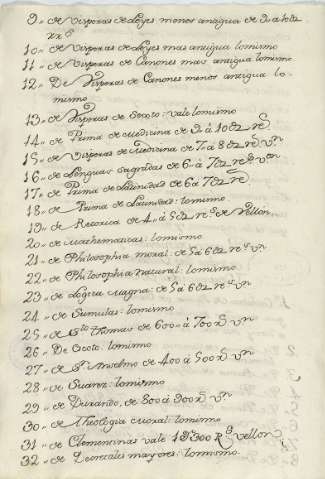 9,, de Visperas de Leyes menos antigua de 9 a 10 U
10,, de Visperas de Leyes mas antigua lo mismo
11,, de Visperas de Canones mas antigua lo mismo
12,, De Visperas de Canones menos antigua lo-
mismo
13,, de Visperas de Escoto: vale lo mismo
14,, de Prima de Medicina de 9 á 10
15,, de Visperas de Medicina de 7 a 8 vn
16,, de Lenguas sagradas de 6 á 7 vn
17,, de Prima de Latinidad de 6 á 7
18,, de Prima de Latinidad: lo mismo
19,, de Retorica de 4 á 5 de Vellon
20,, de Mathematicas: lo mismo
21,, de Philosophia moral: de 5 á 6 vn
22,, de Philosophia natural: lo mismo
23,, de Logica magna: de 5 á 6 vn
24,, de Sumulas: lo mismo
25,, de Sto Thomas de 600 á 700 vn
26,, De Escoto: lo mismo
27,, de Sn Anselmo de 400 á 500 vn
28,, de Suarez: lo mismo
29,, de Durando, de 800 á 900 vn
30,, de Theologia moral: lo mismo
31,, de Clementinas vale Rs vellon
32,, de Decretales mayores: lo mismo